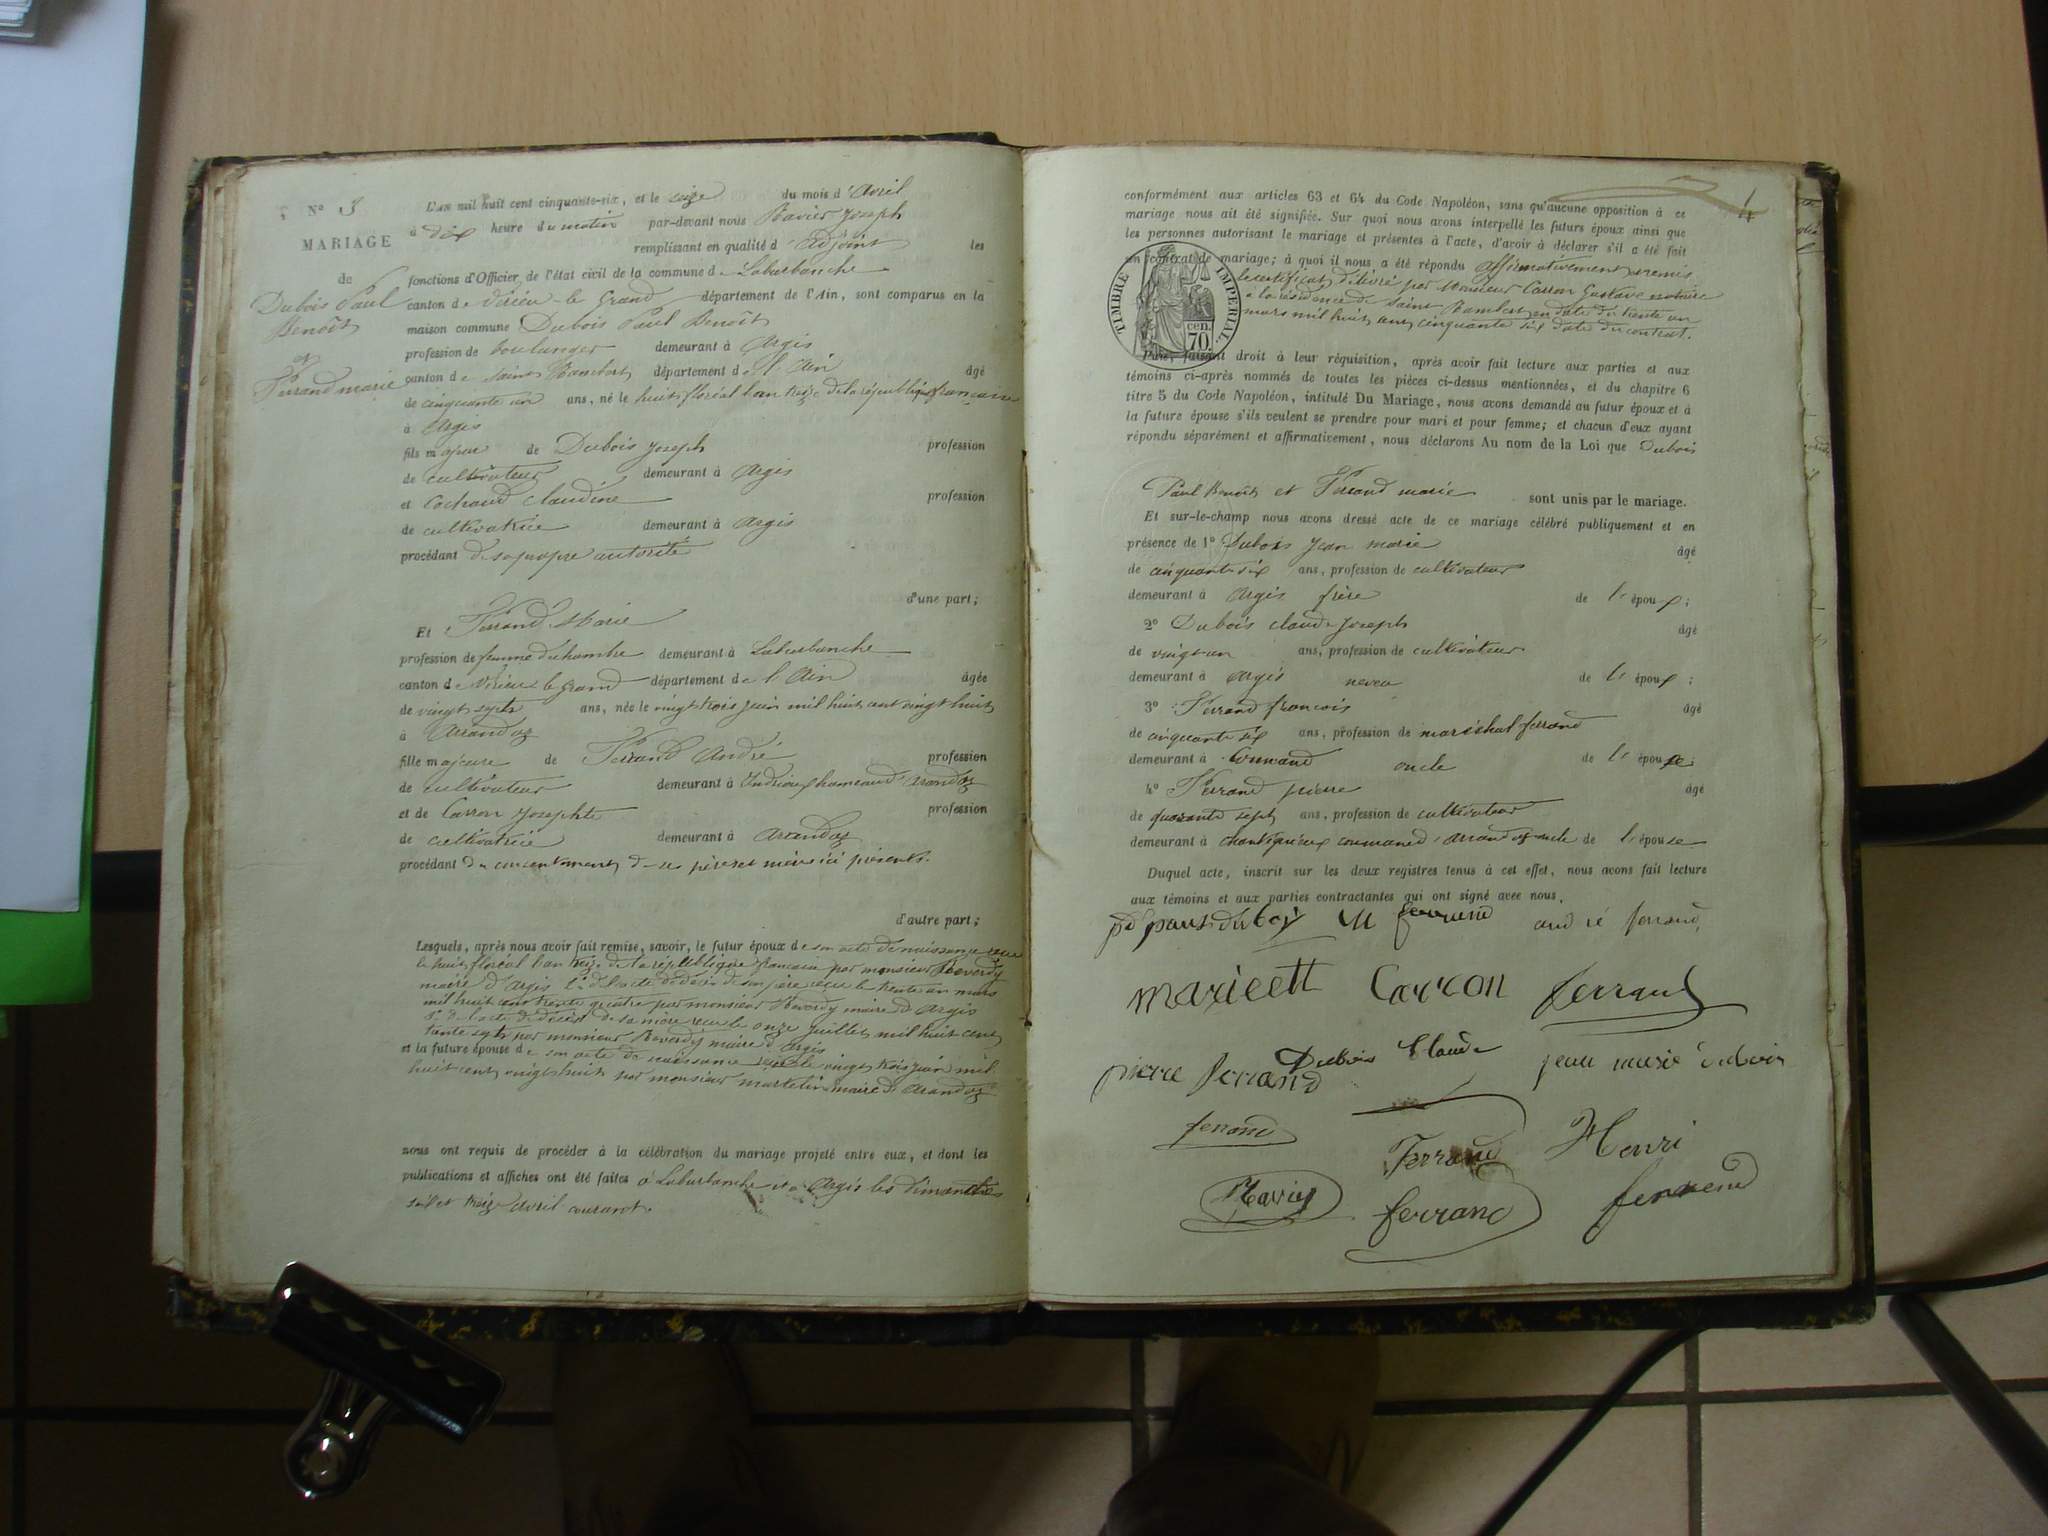 N° 3
MARIAGE
de
Dubois Paul
Benoît
et
Ferrand marie
L'AN mil huit cent cinquante-six, et le seize du mois d'Avril
à dix heure du matin par-devant nous Ravier Joseph
remplissant en qualité d'Adjoint les
fonctions d'Officier de l'état civil de la commune de Laburbanche
canton de Virieu-le Grand département de l'Ain, sont comparus en la
maison commune Dubois Paul Benoît
profession de boulanger demeurant à Argis
canton de Saint Rambert département de l'Ain âgé
de cinquante un ans, né le huit floréal l'an treize de la république francaise
à Argis
fils majeur de Dubois Joseph profession
de cultivateur demeurant à Argis
et Cochaud Claudine profession
de cultivatrice demeurant à Argis
procédant de sa propre autorité
d'une part;
Et Ferrand Marie
profession de femme de chambre demeurant à Laburbanche
canton de Virieu le grand département de l'Ain âgée
de vingt sept ans, née le vingt trois juin mil huit cent vingt huit
à Arandaz
fille majeure de Ferrand André profession
de cultivateur demeurant à Indrieux hameau d'Arandaz
et de Carron Josephte profession
de cultivatrice demeurant à Arandaz
procédant du concentement de ses père et mère ici présents.
d'autre part;
Lesquels, après nous avoir fait remise, savoir, le futur époux de son acte de naissance reçu
le huit floréal l'an treize de la république francaise par monsieur Reverdy
maire d'Argis 2° de l'acte de décès de son père reçu le trente un mars
mil huit cent trente quatre par monsieur Reverdy maire d'Argis
3° de l'acte de décès de sa mère reçu le onze juillet mil huit cent
trente sept par monsieur Reverdy maire d'Argis
et la future épouse de son acte de naissance reçu le vingt trois juin mil
huit cent vingt huit par monsieur martelin maire d'Arandaz
nous ont requis de procéder à la célébration du mariage projeté entre eux, et dont les
publications et affiches ont été faites à Laburbanche et à Argis les dimanches
six et treize avril courant.
4
conformément aux articles 63 et 64 du Code Napoléon, sans qu'aucune opposition à ce
mariage nous ait été signifiée. Sur quoi nous avons interpellé les futurs époux ainsi que
les personnes autorisant le mariage et présentes à l'acte, d'avoir à déclarer s'il a été fait
un contrat de mariage; à quoi il nous a été répondu affirmativement et remis
le certificat délivré par Monsieur Carron Gustave notaire
a la résidence de Saint Rambert en date du trente un
mars mil huit cent cinquante six date du contrat.
TIMBRE IMPERIAL
cen.
70.
Puis, faisant droit à leur réquisition, après avoir fait lecture aux parties et aux
témoins ci-après nommés de toutes les pièces ci-dessus mentionnées, et du chapitre 6
titre 5 du Code Napoléon, intitulé Du Mariage, nous avons demandé au futur époux et à
la future épouse s'ils veulent se prendre pour mari et pour femme; et chacun d'eux ayant
répondu séparément et affirmativement, nous déclarons Au nom de la Loi que Dubois
Paul Benoît et Ferrand marie sont unis par le mariage.
Et sur-le-champ nous avons dressé acte de ce mariage célébré publiquement et en
présence de 1° Dubois Jean marie âgé
de cinquante six ans, profession de cultivateur
demeurant à Argis frère de l'époux;
2° Dubois Claude Joseph âgé
de vingt un ans, profession de cultivateur
demeurant à Argis neveu de l'époux;
3° Ferrand francois âgé
de cinquante six ans, profession de maréchal ferrand
demeurant à Conand oncle de l'épouse;
4° Ferrand pierre âgé
de quarante sept ans, profession de cultivateur
demeurant à oncle de l'épouse
Duquel acte, inscrit sur les deux registres tenus à cet effet, nous avons fait lecture
aux témoins et aux parties contractantes qui ont signé avec nous.
M ferrand andré ferrand
Carron ferrand
Dubois Claude jean marie dubois
pierre ferrand
ferrand
Ferrand Henri
Ravier ferrand ferrand